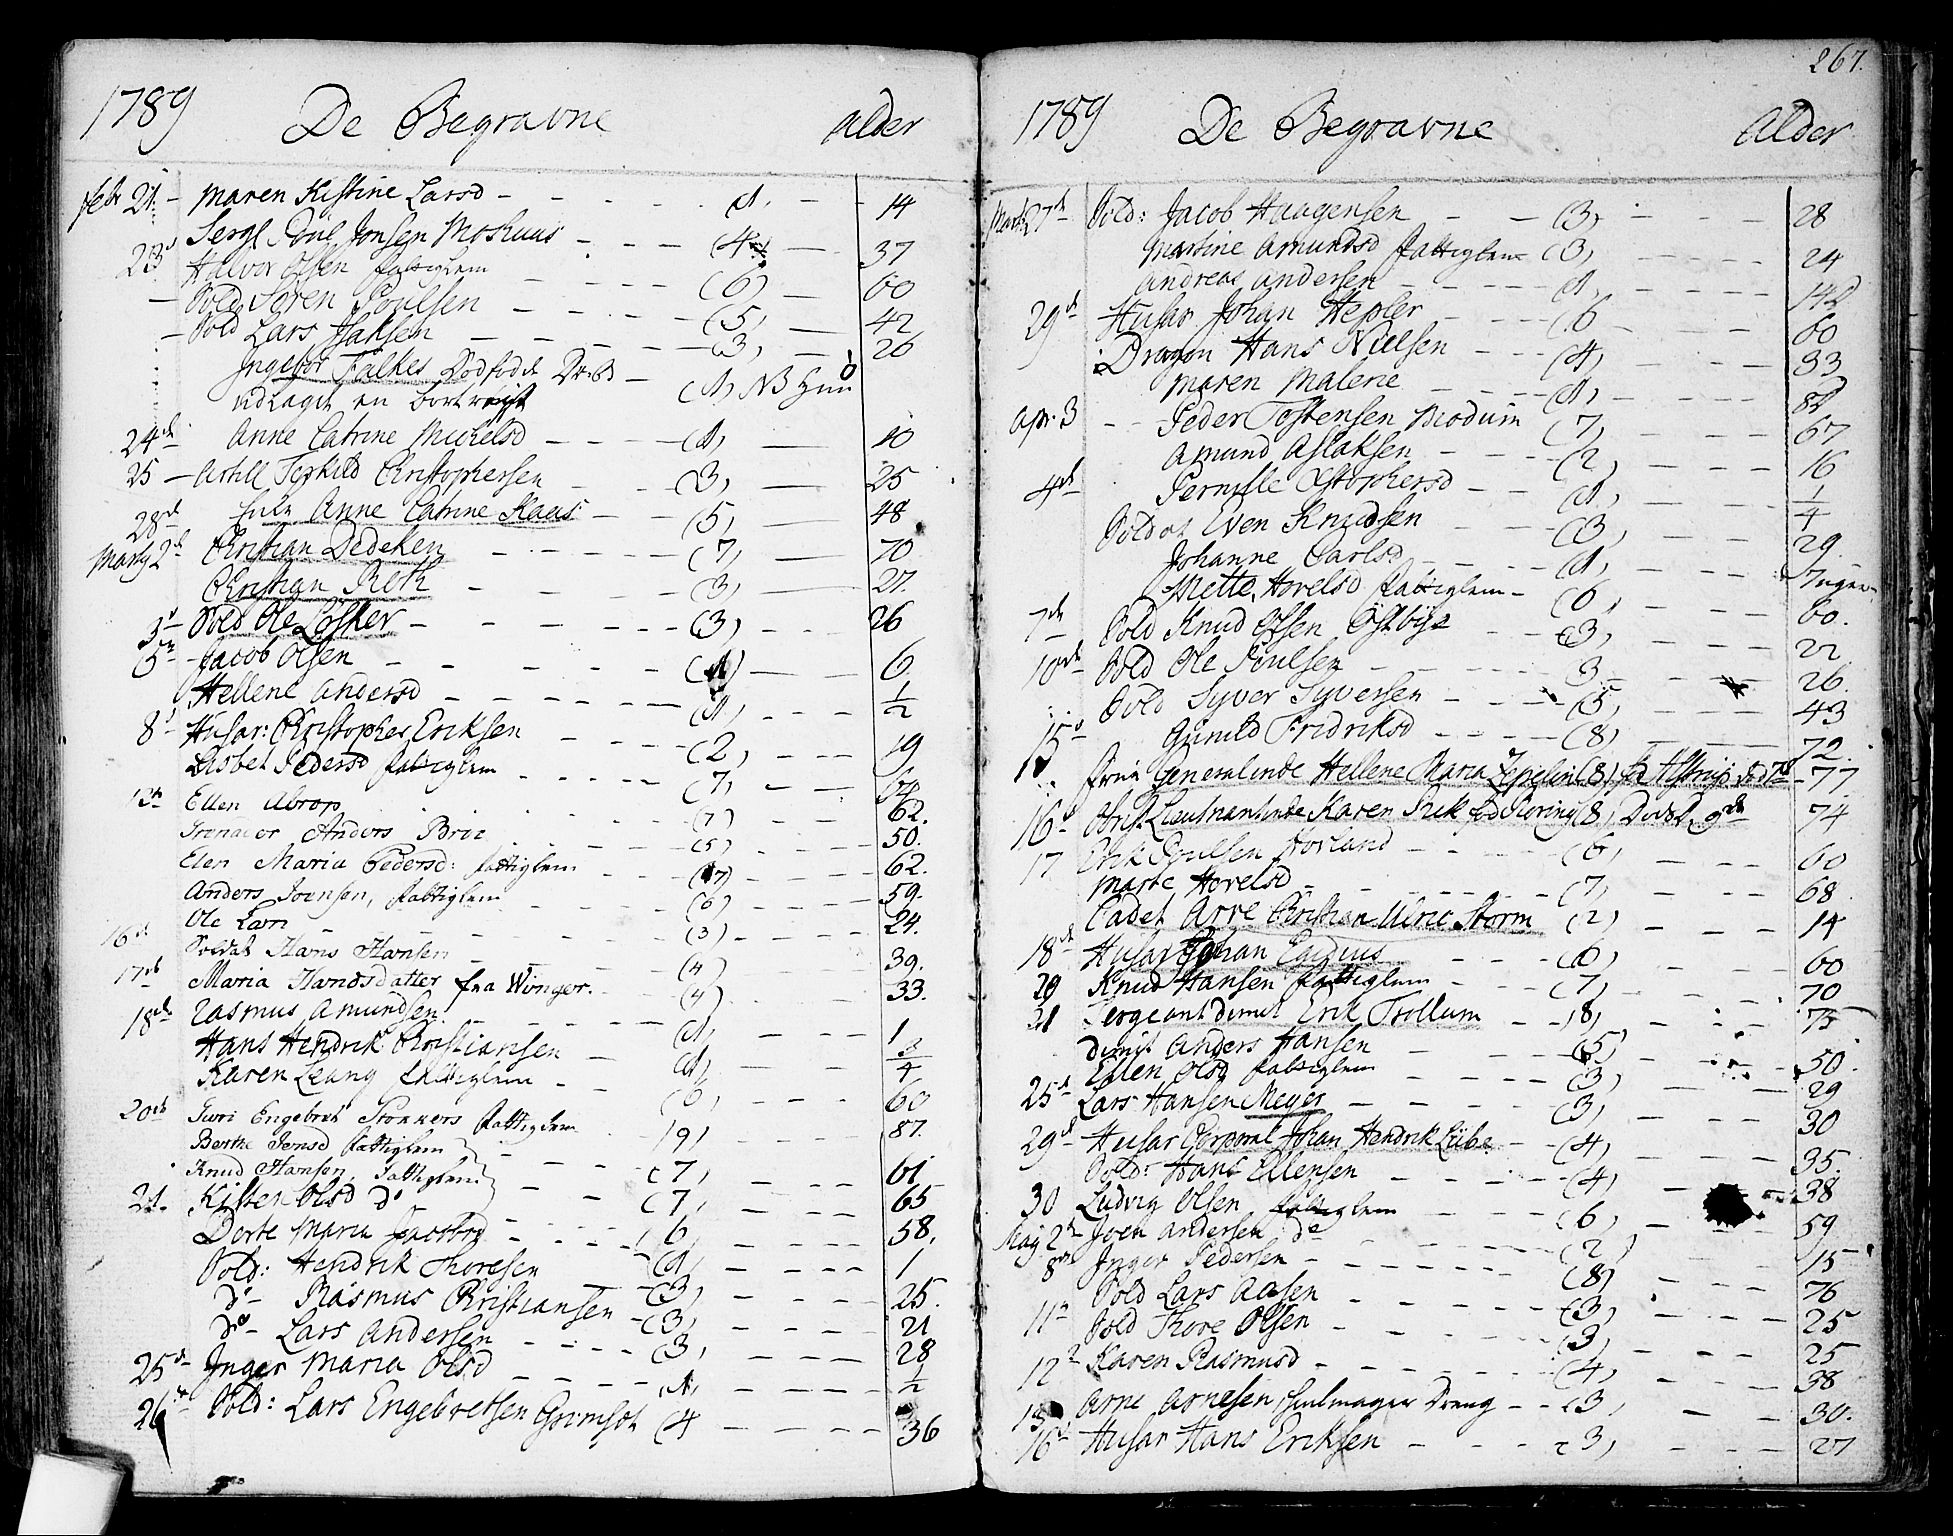 1789 De Begravne Alder
Febr 21. - Maren Kistine Larsd - (1, 14
Serg. Poul Jonsen Moshuus (4 37
23 Halvor Olsen fattiglem (6) 60
- Sold Søren Poulsen (5, 42
- Sold Lars Isaksen (3, 26
Ingebor Falkes Dødfød (1, NB Hun 0
udlagt en bortreist
24de Anne Catrine Michelsd (1, 10
25 - Artill Terkild Christophersen (3, 25
28de Anne Catrine Kaas (5, 48
Marty 2 Christian Dedeken (7, 70
Christian Roth (3, 27.
3 Sold Ole Løsker (3) 26
5 Jacob Olsen (1) 6
Hellene Andersd (1, 1/2
8 Husar: Christopher Eriksen (2, 19
Lisbet Pedersd fattiglem (7, 64
13 Ellen Abrop (7) 62.
Grenader Anders Brie (5) 50.
Elen Maria Pedersd: fattiglem (7) 62.
Anders Joensen, fattiglem (6) 59.
Ole Larn (3) 24.
16d. Soldat Hans Hansen (4) 39.
17de Maria Handsdatter fra Winger. (4) 33.
18de Rasmus Amundsen (1, 1
Hans Hendrik Christiansen (1, 3/4
Karen Leang fattiglem (6, 60
20de Guri Engebret Stokkers fattiglem (9) 87.
Berthe Jensd fattiglem
Knud Hansen, fattiglem (7, 61
21. Kisten Olsd do (7, 65
Dorte Maria Jacobsd (6, 58,
Sold: Hendrik Thoresen (1, 1
do - Rasmus Christiansen (3, 25.
do - Lars Andersen (3, 21
(3, 28
25d Inger Maria Olsd (1, 1/2
26 Sold: Lars Engebretsen Grimsøt (4 36
267.
1789 De Begravne Alder
Mart: 27d Sold: Jacob Haagensen (3, 28
Martine Amundsd fattiglem (3, 24
Andreas Andersen (1, 14
29d Husar Johan Hepler (6 60
Dragon Hans Nielsen (4, 33
Maren Malene (1, 8
Apr. 3 Peder Tostensen Modum (7, 67
Amund Aslaksen (2, 16
4de Pernille Xstophersd (1, 1/4
Soldat Even Knudsen (3, 29.
Johanne Carlsd (1, 7 uger
Mette Hovelsd fattiglem - (6, 60.
7de Sold Knud Olsen Østbye (3, 22
10de Sold Ole Poulsen 3 26.
Sold Syver Syversen (5, 43
15 Gunild Fridriksd (8) 72.
Frue Generalinde Hellene Maria Zepelin (8, 77.
16 Obrist Lieutnantinde Karen Sick (8, Døde 9de 74
17 Erik Poulsen Hovland (6, 60
Marte Hovelsd (7, 68
Cadet Arve Christian Ulric Storm (2) 14
18de Husar Johan Egidius (6, 60
20 Knud Hansen fattiglem (7, 70
21 Sergeant dimit Erik Trollum (8, 75
dimit Anders Hansen (5, 50.
Ellen Olsd fattiglem (3, 29
25d Lars Hansen Meyer (3, 30
29d Husar Corporal Johan Hendrik Lübe (4, 35.
Sold: Hans Ellensen (4, 38
30 Ludvig Olsen fattiglem (6, 59
May 2 Joen Andersen do (2, 15
8 Inger Pedersen (8) 76
Sold Lars Aasen (3, 25
11 Sold Thore Olsen (3, 25
12 Karen Rasmusd (4, 38
15 Arne Arnesen, Hiulmager Dreng (3, 30.
16 Husar Hans Eriksen (3, 27